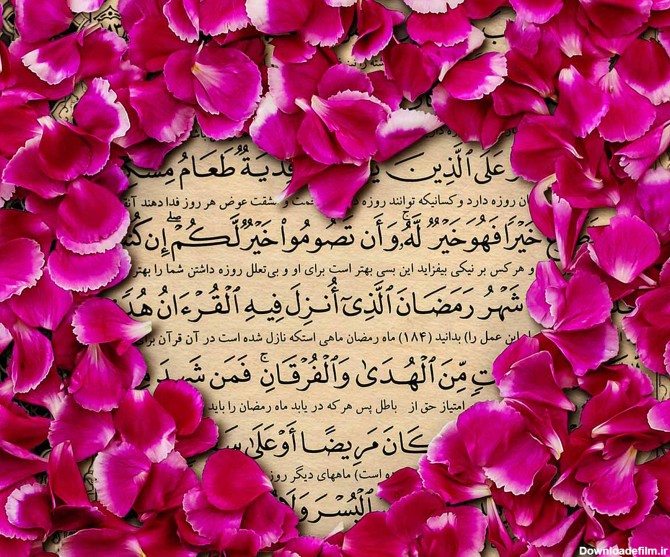 عَلَى ٱلَّذِينَ فِدْيَةٌ طَعَامُ
روزه دارد و کسانیکه توانند روزه و مشقت عوض هر روز فدا دهند
خَيْرًا فَهُوَ خَيْرٌ لَّهُۥ وَأَن تَصُومُوا۟ خَيْرٌ لَّكُمْ إِن
و هر کس بر نیکی بیفزاید این بسی بهتر است برای او و بی‌تعلل روزه داشتن شما را بهتر
شَهْرُ رَمَضَانَ ٱلَّذِىٓ أُنزِلَ فِيهِ ٱلْقُرْءَانُ هُدًى
این عمل را) بدانید (۱۸۴) ماه رمضان ماهی استکه نازل شده است در آن قرآن برای
مِّنَ ٱلْهُدَىٰ وَٱلْفُرْقَانِ فَمَن شَهِدَ
امتیاز حق از باطل پس هر که در یابد ماه رمضان را باید
كَانَ مَرِيضًا أَوْ عَلَىٰ
است) ماههای دیگر روزه
ٱلْيُسْرَ وَلَا
Downloadefilm.ir